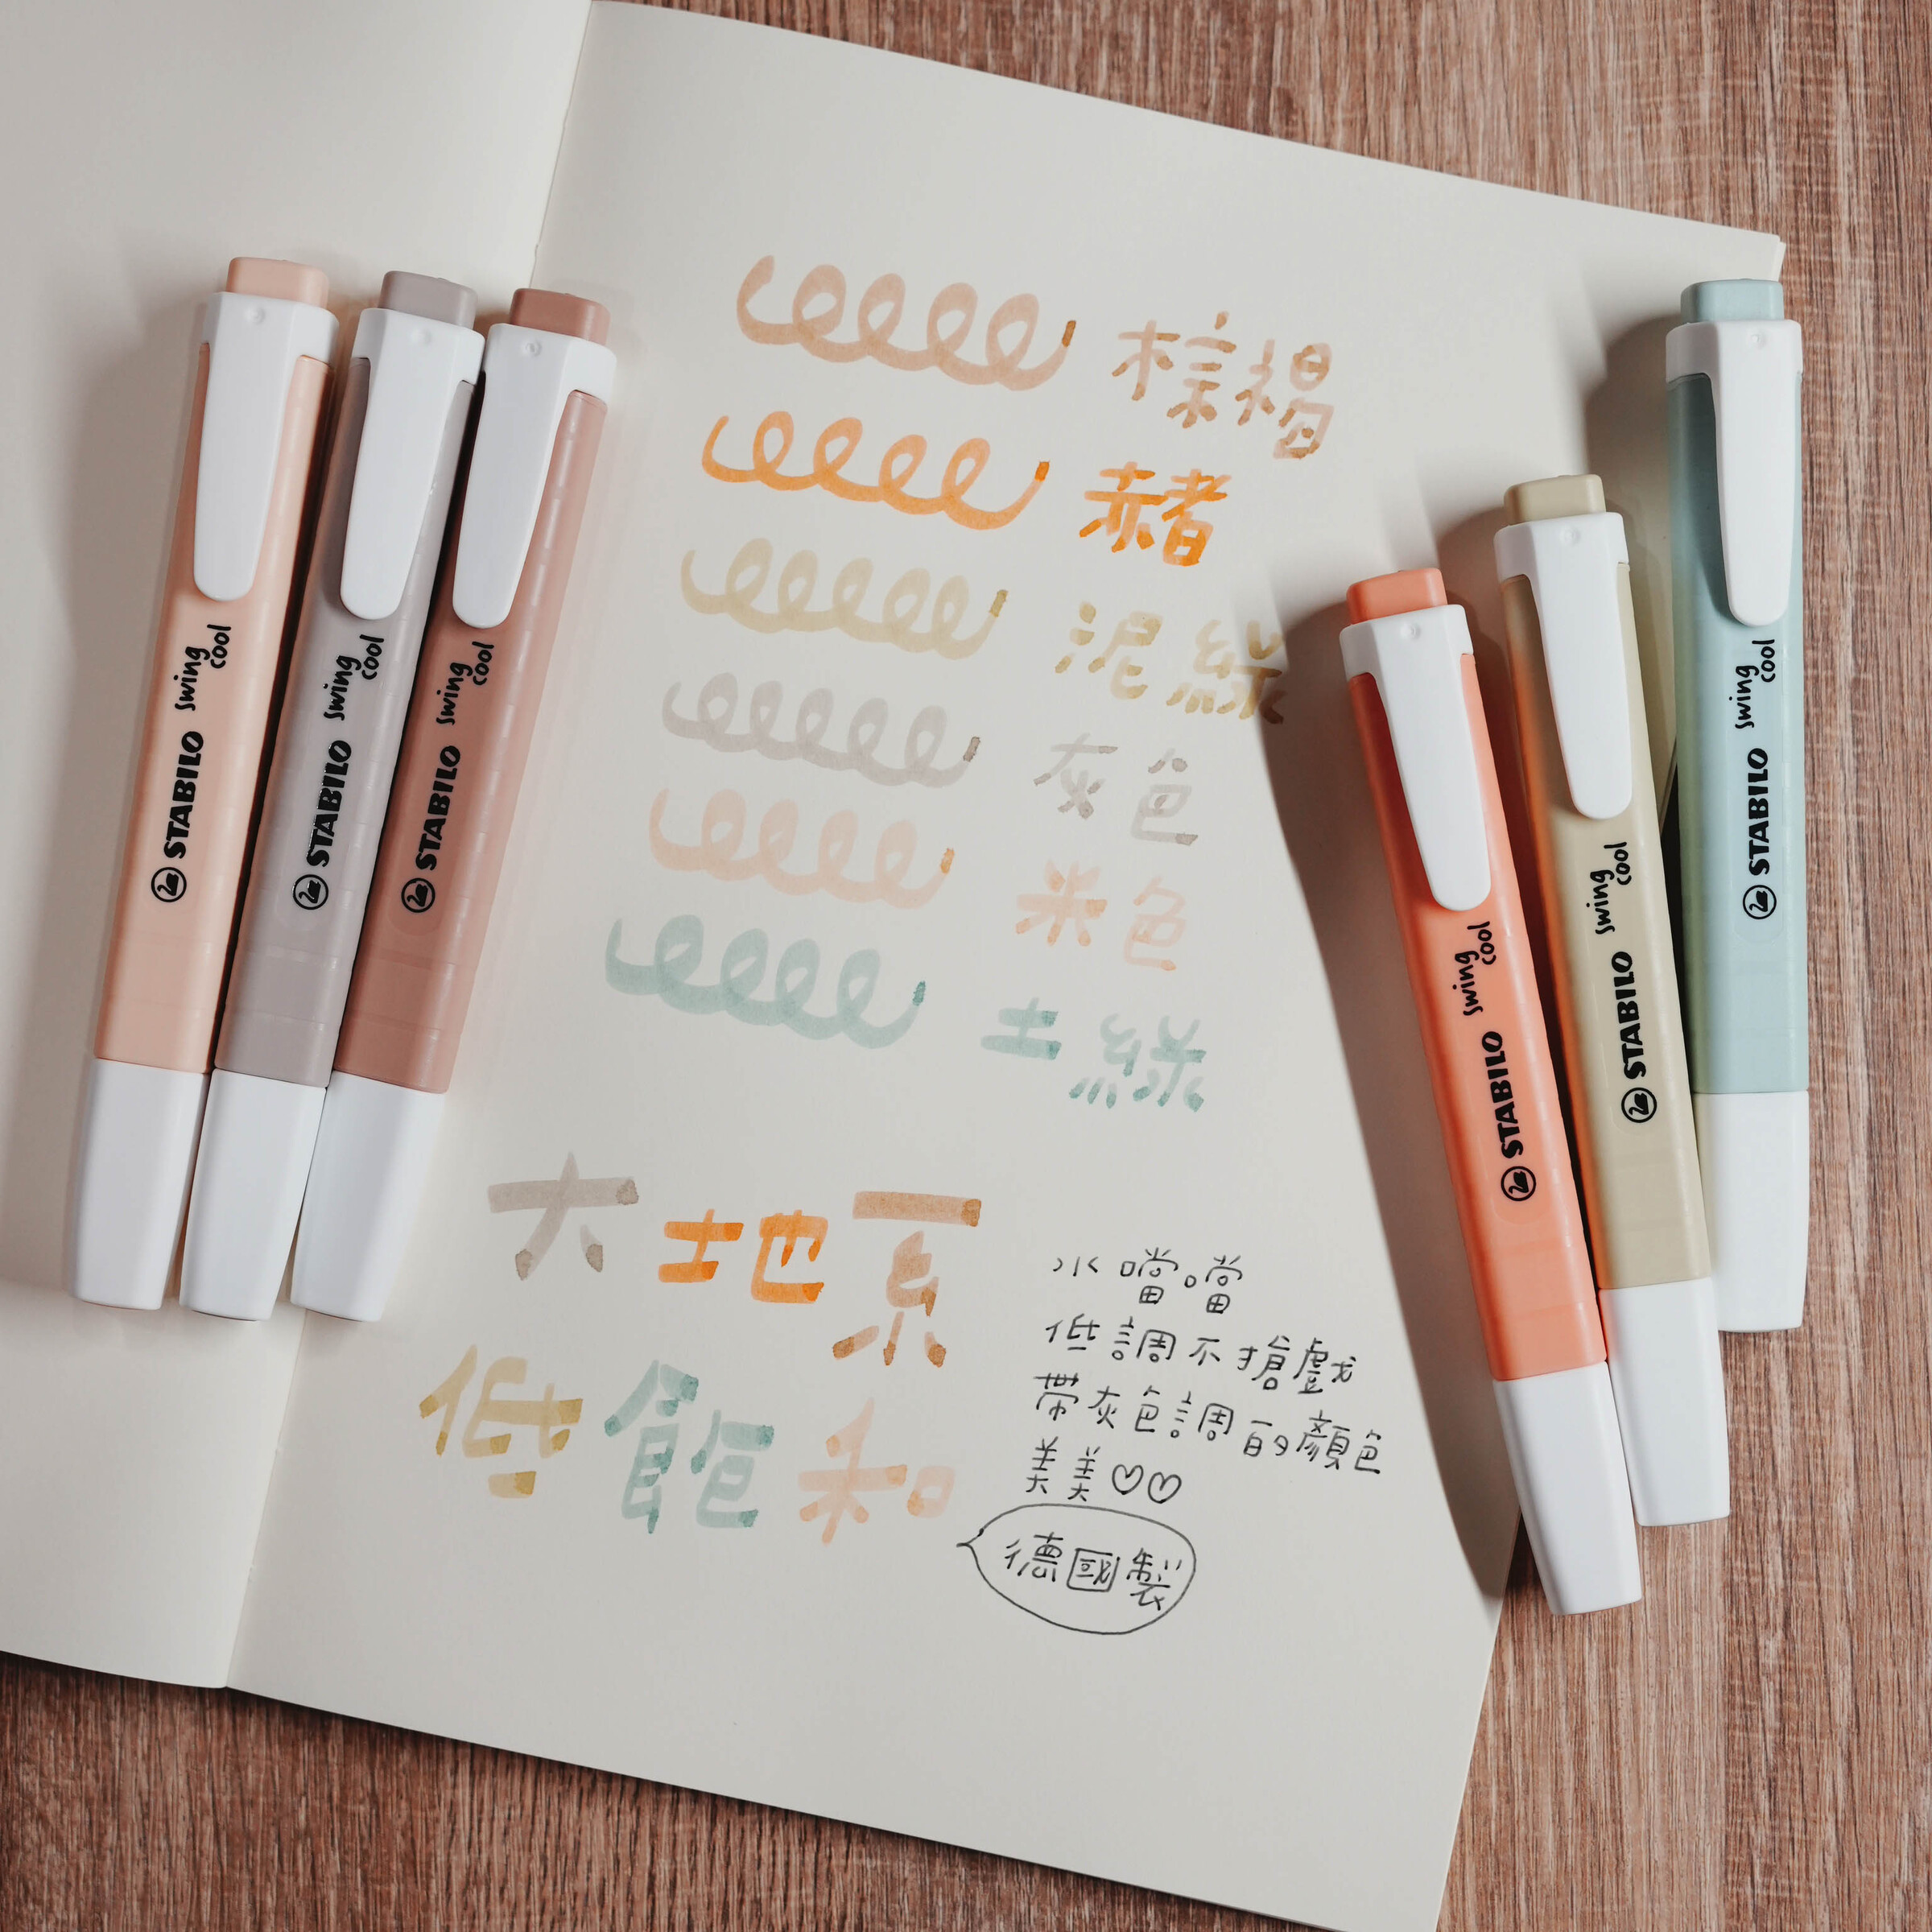 棕褐
赭
泥綠
灰色
米色
土綠
大地系
低飽和
水噹噹
低調不搶戲
帶灰色調的顏色
美美♡♡
德國製
STABILO swing cool
STABILO swing cool
STABILO swing cool
STABILO swing cool
STABILO swing cool
STABILO swing cool